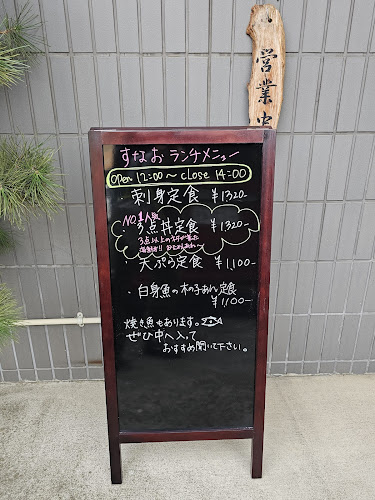 営業中
すなお ランチメニュー
open 12:00〜close 14:00
・刺身定食 ¥1320-
NO.1人気
3点丼定食 ¥1320-
3点以上の
天ぷら定食 ¥1,100-
・白身魚の木の子あん定食
¥1,100-
焼き魚もあります。
ぜひ中へ入って
おすすめ聞いて下さい。